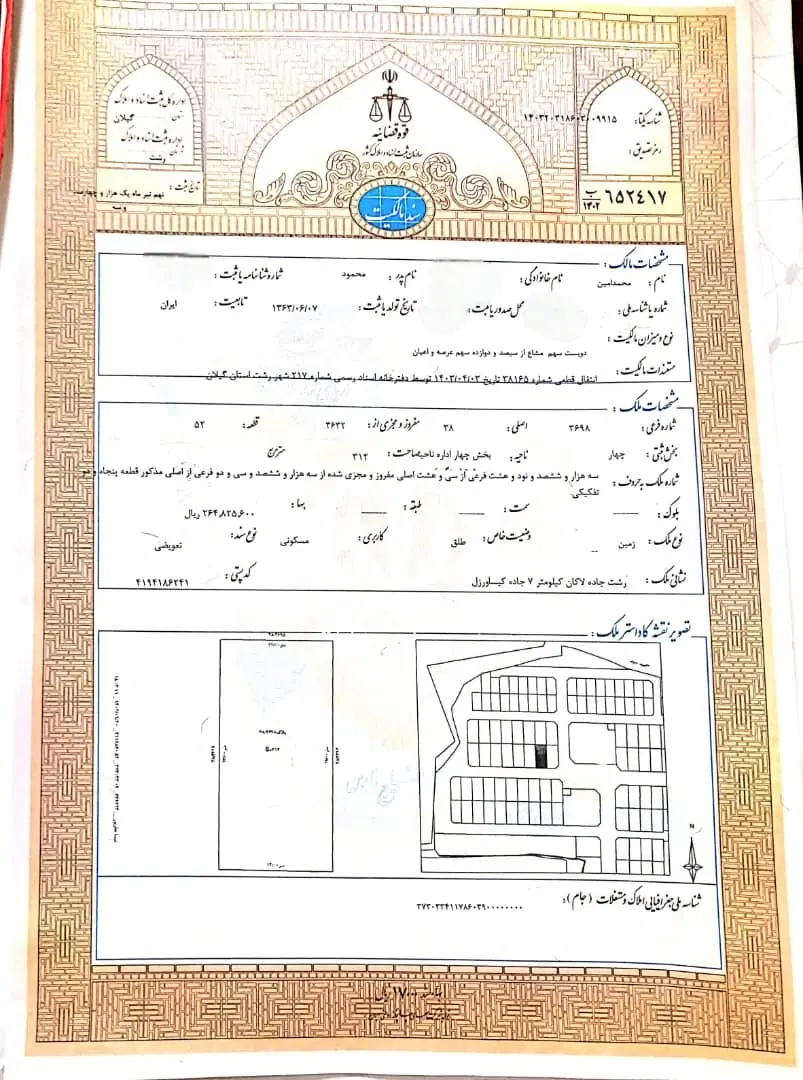 اداره کل ثبت اسناد و املاک
استان گیلان
اداره ثبت اسناد و املاک
رشت
تاریخ ثبت: نهم تیر ماه یک هزار و چهارصد و سه
قوه قضائیه
سازمان ثبت اسناد و املاک کشور
سند مالکیت
شناسه یکتا:
رمز تصدیق:
۶۵۲۴۱۷ ب ۱۴۰۲
مشخصات مالک:
نام: محمدامین نام خانوادگی: نام پدر: محمود شماره شناسنامه یا ثبت:
شماره یا شناسه ملی: محل صدور یا ثبت: تاریخ تولد یا ثبت: ۱۳۶۳/۰۶/۰۷ تابعیت: ایران
نوع و میزان مالکیت: دویست سهم مشاع از سیصد و دوازده سهم عرصه و اعیان
مستندات مالکیت: انتقال قطعی شماره ۳۸۱۶۵ تاریخ ۱۴۰۳/۰۴/۰۳ توسط دفترخانه اسناد رسمی شماره ۲۱۷ شهر رشت استان گیلان
مشخصات ملک:
شماره فرعی: ۳۶۹۸ اصلی: ۳۸ مفروز و مجزی از: ۳۶۳۲ قطعه: ۵۲
بخش ثبتی: چهار ناحیه: بخش چهار اداره ناحیه مساحت: ۳۱۲ مترمربع
شماره ملک به حروف: سه هزار و ششصد و نود و هشت فرعی از سی و هشت اصلی مفروز و مجزی شده از سه هزار و ششصد و سی و دو فرعی از اصلی مذکور قطعه پنجاه و دو
تفکیکی
بلوک: سمت: طبقه: بها: ۲۶۴,۸۲۵,۶۰۰ ریال
نوع ملک: زمین وضعیت خاص: طلق کاربری: مسکونی نوع سند: تعویضی
نشانی ملک: رشت جاده لاکان کیلومتر ۷ جاده کیساورزل کد پستی: ۴۱۹۴۱۸۶۲۴۱
تصویر نقشه کاداستر ملک:
N
شناسه ملی جغرافیایی املاک و مستغلات (جام):